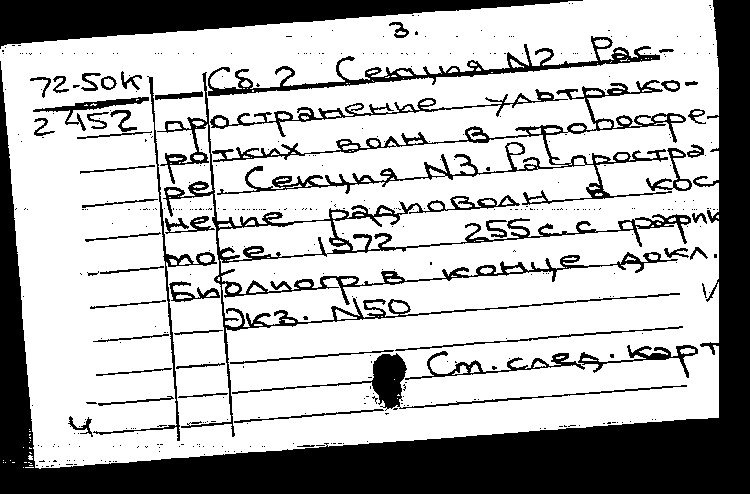 3.
72-50к Сб. 2 Секция N2. Рас-
2 452 пространение ультрако-
ротких волн в тропосфе-
ре. Секция N3. Распростра-
нение радиоволн в кос-
мосе. 1972. 255 с. с график
Библиогр. в конце докл.
Экз. N50
См. след. карт
4